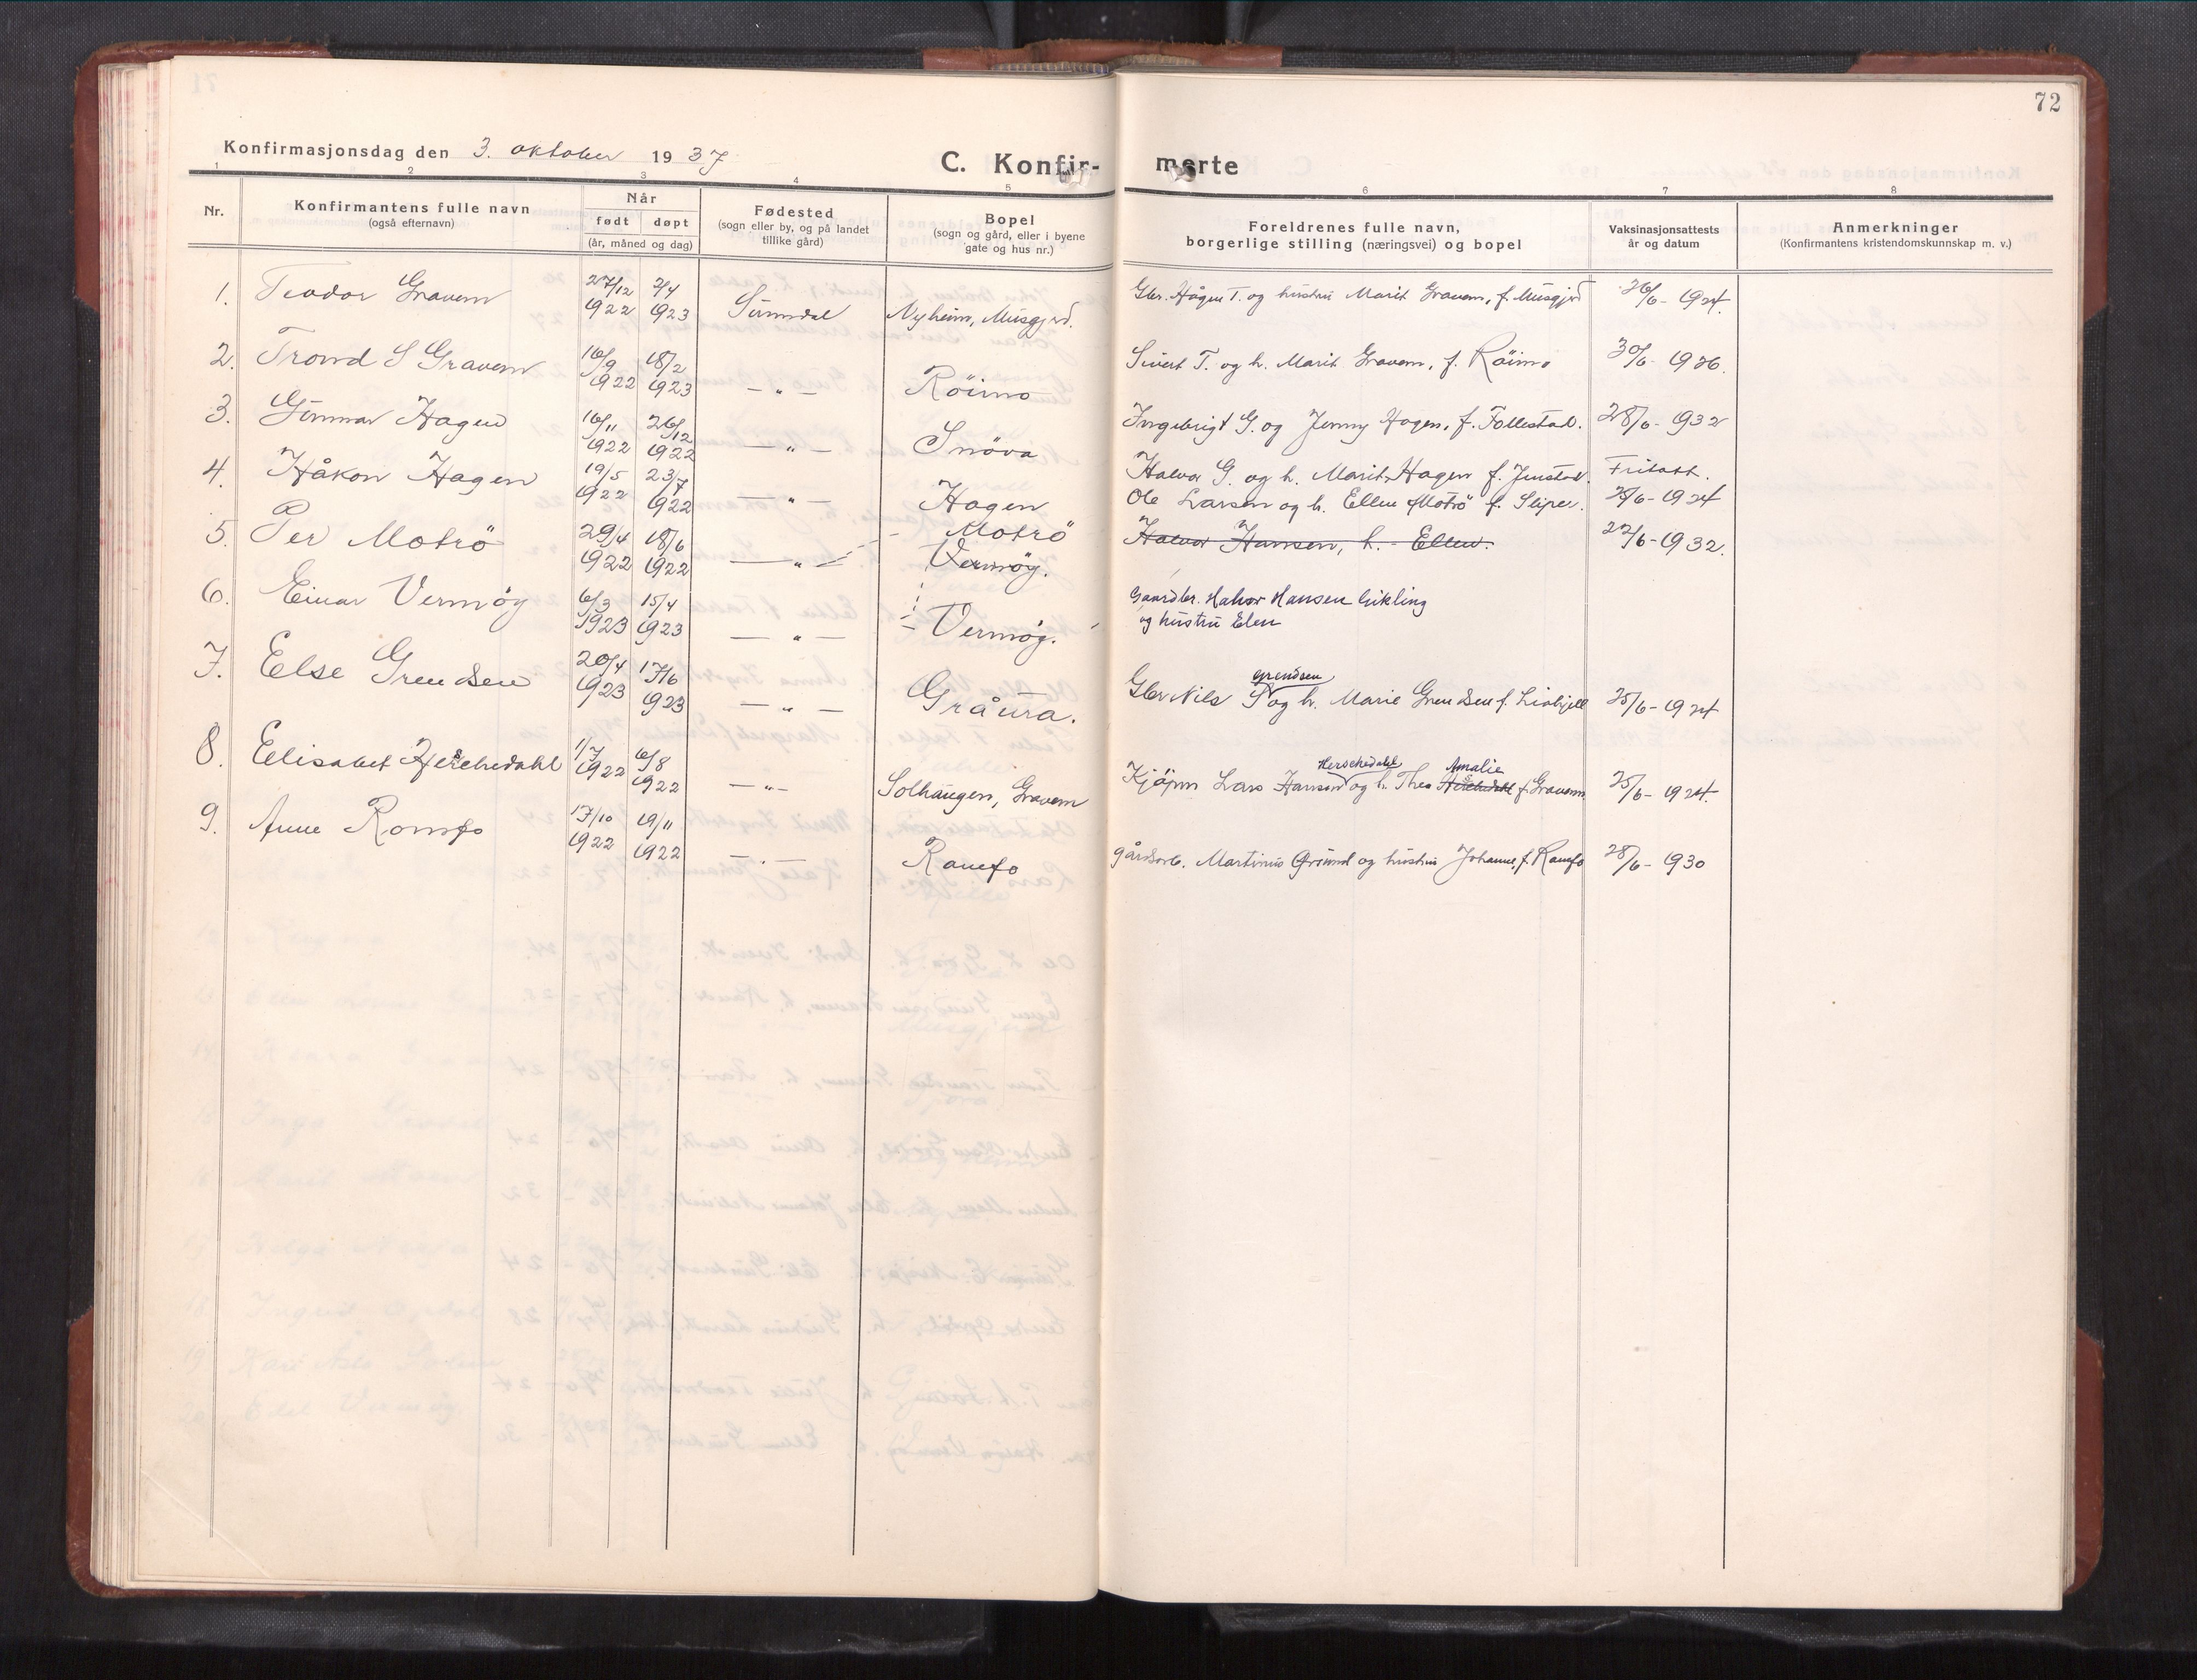 72
Konfirmasjonsdag den 3. oktober 1937
C. Konfir-
merte
1 2 3 4 5 6 7 8
Nr.
Konfirmantens fulle navn
(også efternavn)
Når
født døpt
(år, måned og dag)
Fødested
(sogn eller by, og på landet
tillike gård)
Bopel
(sogn og gård, eller i byene
gate og hus nr.)
Foreldrenes fulle navn,
borgerlige stilling (næringsvei) og bopel
Vaksinasjonsattests
år og datum
Anmerkninger
(Konfirmantens kristendomskunnskap m. v.)
1. Teodor Gravem 27/12 1922 2/4 1923 Sunndal Nyheim, Musgjerd. Gbr. Hågen T. og hustru Marit Gravem, f. Musgjerd 26/6 - 1924.
2. Trond S Gravem 16/9 1922 18/2 1923 — „ — Röimo Sivert T. og h. Marit Gravem, f. Röimo 30/6 - 1936.
3. Gunnar Hagen 16/11 1922 26/12 1922 — „ — Snöva Ingebrigt G. og Jenny Hagen, f. Follestad. 28/6 - 1932
4. Håkon Hagen 19/5 1922 23/7 1922 — „ — Hagen Halvor G. og h. Marit Hagen f. Jenstad. Fritatt.
5. Per Motrö 29/4 1922 18/6 1922 — „ — Motrö Ole Larsen og h. Ellen Motrö f. Slipe. 25/6 - 1924
Vermöy. Halvor Hansen, h. - Ellen. 22/6 - 1932.
6. Einar Vermöy 6/3 1923 15/4 1923 — „ — Vermöy. Gaardbr. Halvor Hansen Gikling
og hustru Elen
7. Else Grendsen 20/4 1923 17/6 1923 — „ — Gråura. Gbr Nils S Grendsen og h. Marie Grendsen f. 25/6 - 1924
8. Elisabet Herschedahl 1/7 1922 6/8 1922 — „ — Solhaugen, Gravem Kjöpm Lars Hansen Herschedahl og h. Thea Herschedahl Amalie f. Gravem 25/6 - 1924.
9. Anne Romfo 17/10 1922 19/11 1922 — „ — Romfo gårdarb. Martinus Grimul og hustru Johanne, f. Romfo 28/6 - 1930